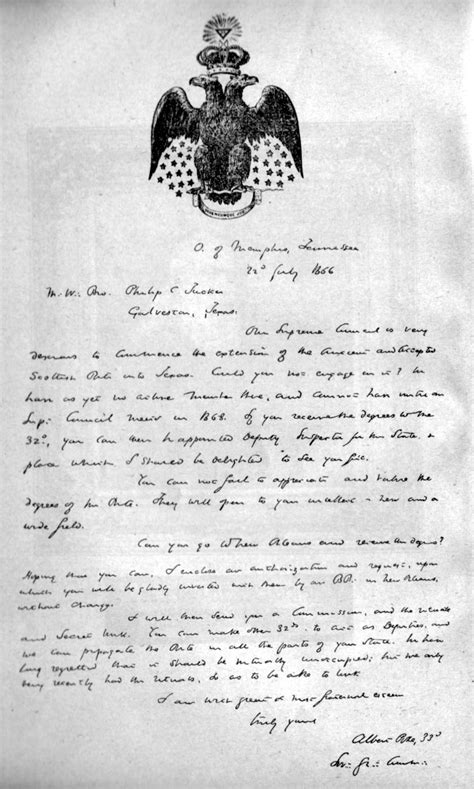 O. of Memphis, Tennessee
22d July 1866
M. W. Bro. Philip C Tucker
Galveston, Texas:
Our Supreme Council is very
desirous to commence the extension of the Ancient and Accepted
Scottish Rite into Texas. Could you not engage in it? We
have as yet no active Member there, and cannot have until an
Sup. Council meets in 1868. If you receive the degrees to the
32°, you can then be appointed Deputy Inspector for the State, a
place which I should be delighted to see you fill.
You can not fail to appreciate and value the
degrees of the Rite. They will open to you an new and a
wide field.
Can you go to New Orleans and receive the degrees?
Hoping that you can, I enclose an authorization and request, upon
which you will be gladly invested with them by our BB. in New Orleans,
without charge.
I will then send you a Commission, and the rituals
and Secret Work. You can make other 32ds, to act as Deputies, and
we can propagate the Rite in all the parts of your State. We have
long regretted that it should be unoccupied; but we only
very recently had the rituals, so as to be able to work
I am with great &amp; most fraternal esteem
truly yours
Albert Pike, 33d
Sov∴ Gr∴